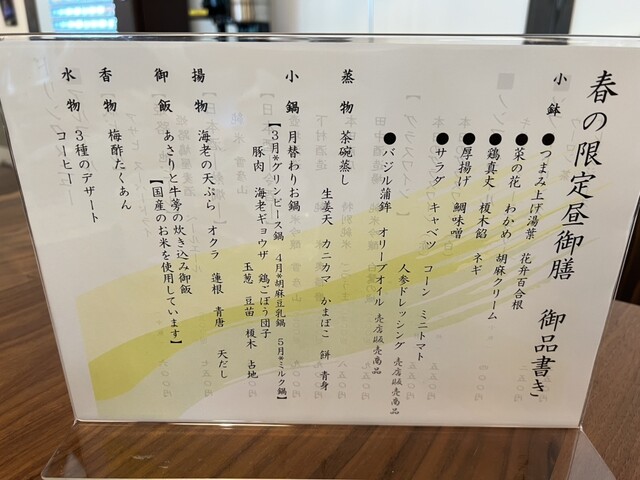 春の限定昼御膳　御品書き
小鉢 ●つまみ上げ湯葉　花弁百合根
●菜の花　わかめ　胡麻クリーム
●鶏真丈　榎木餡　ネギ
●厚揚げ　鯛味噌
●サラダ　キャベツ　コーン　ミニトマト
人参ドレッシング　売店販売商品
●バジル蒲鉾　オリーブオイル　売店販売商品
蒸物 茶碗蒸し
生姜天　カニカマ　かまぼこ　餅　青身
小鍋 月替わりお鍋
【3月*グリンピース鍋　4月*胡麻豆乳鍋　5月*ミルク鍋】
豚肉　海老ギョウザ　鶏ごぼう団子
玉葱　豆苗　榎木　占地
揚物 海老の天ぷら　オクラ　蓮根　青唐　天だし
御飯 あさりと牛蒡の炊き込み御飯
【国産のお米を使用しています】
香物 梅酢たくあん
水物 3種のデザート
コーヒー